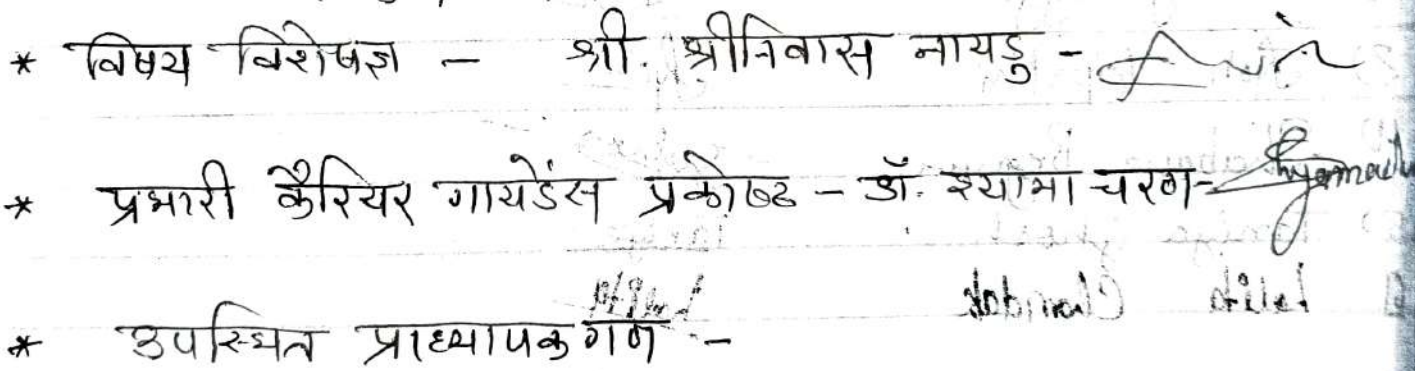 * विषय विशेषज्ञ - श्री. श्रीनिवास नायडु -
* प्रभारी कैरियर गायडेंस प्रकोष्ठ - डॉ. श्यामा चरण -
* उपस्थित प्राध्यापक गण -